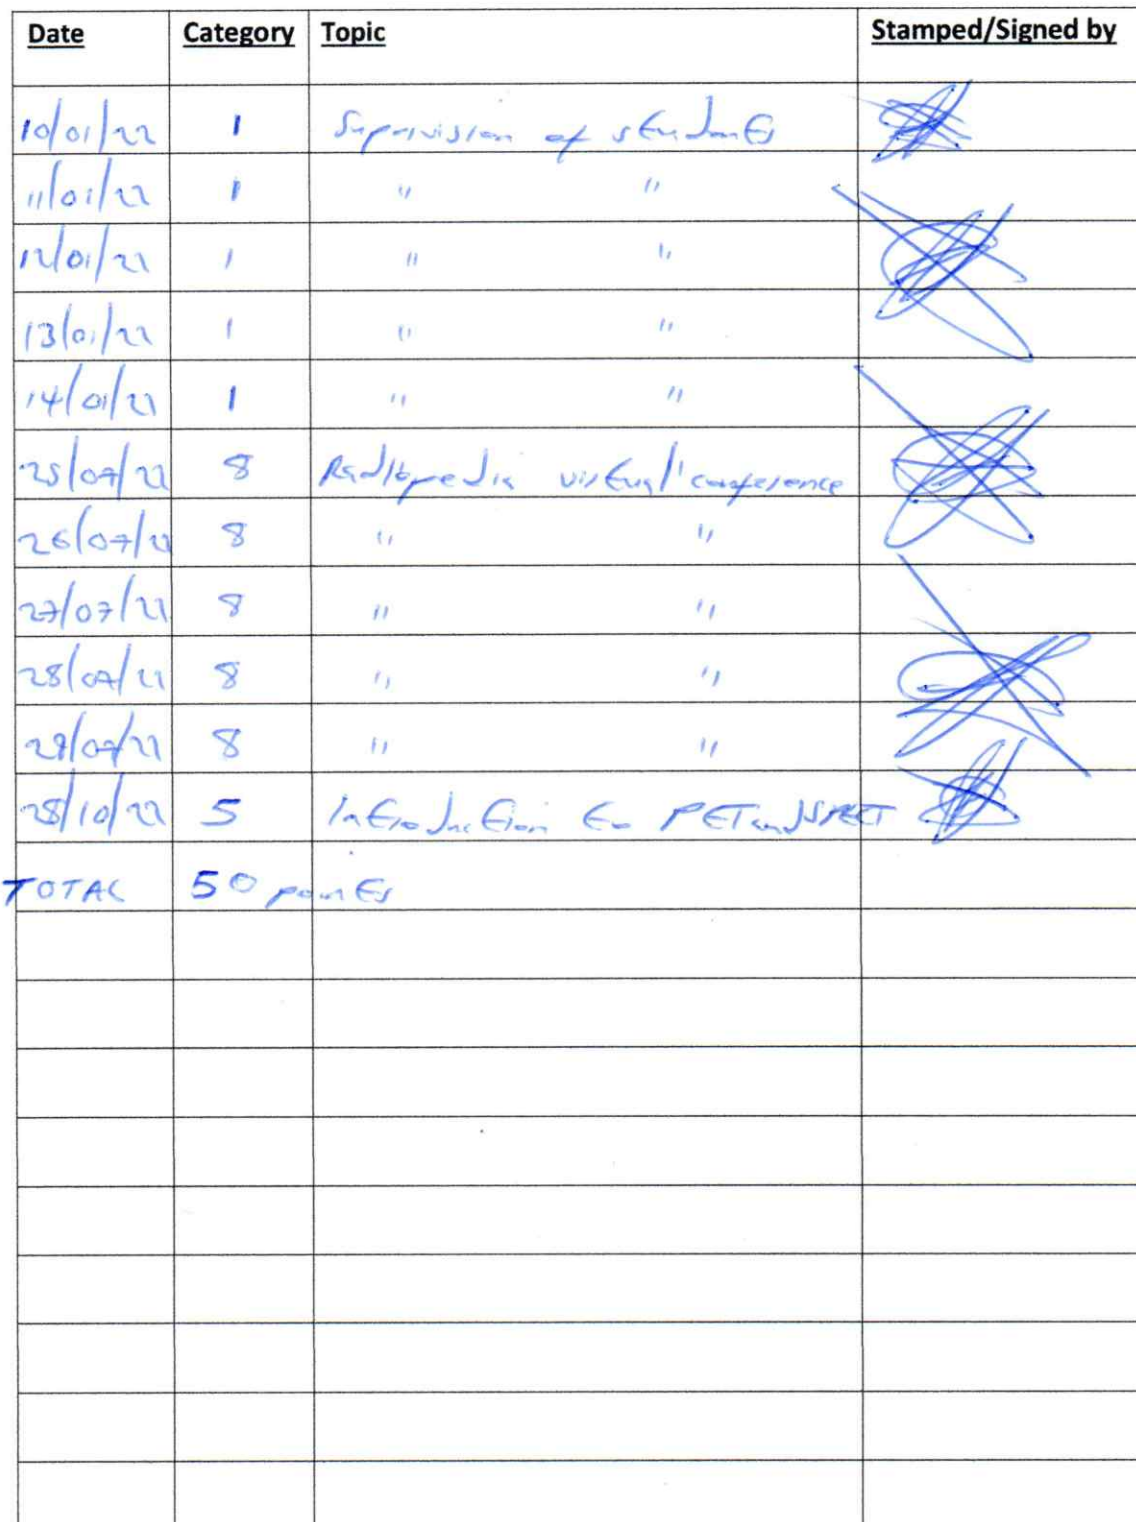 Date Category Topic Stamped/Signed by
10/01/22 1 Supervision of students
11/01/22 1 " "
12/01/22 1 " "
13/01/22 1 " "
14/01/22 1 " "
25/07/22 8 Radiopedia virtual conference
26/07/22 8 " "
27/07/22 8 " "
28/07/22 8 " "
29/07/22 8 " "
28/10/22 5 Introduction to PET and SPECT
TOTAL 50 points